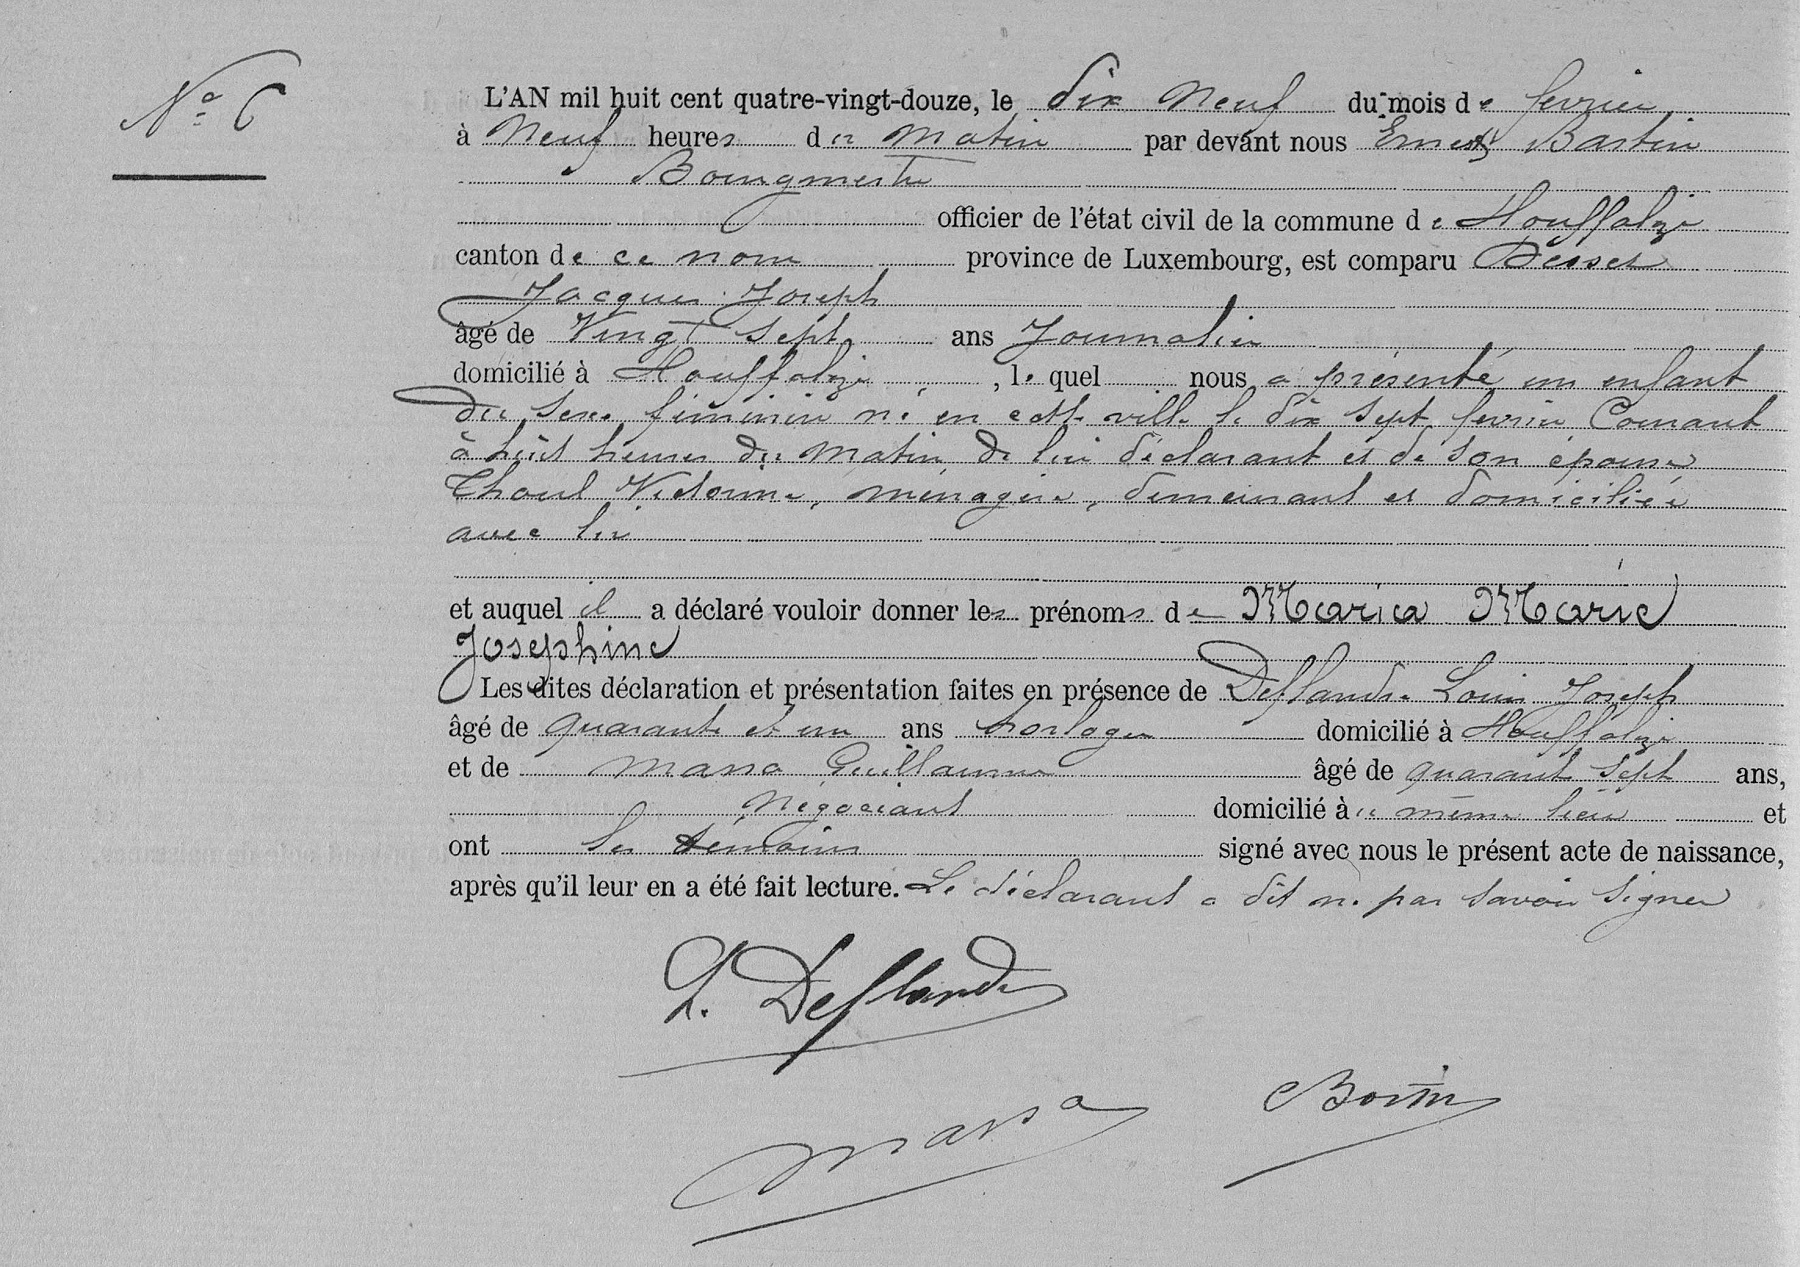 N° 6
L'AN mil huit cent quatre-vingt-douze, le dix neuf du mois de fevrier
à Neuf heures du matin par devant nous Ernest Bastin
Bourgmestre
officier de l'état civil de la commune de Houffalize
canton de ce nom province de Luxembourg, est comparu
Jacques Joseph
âgé de Vingt sept ans Journalier
domicilié à Houffalize, lequel nous a présenté un enfant
du sexe féminin né en cette ville le dix sept fevrier Courant
à huit heures du matin de lui déclarant et de son épouse
Thoul Victorine, ménagère, demeurant et domiciliée
avec lui
et auquel il a déclaré vouloir donner les prénoms de Maria Marie
Joséphine
Les dites déclaration et présentation faites en présence de Deflandre Louis Joseph
âgé de quarante et un ans horloger domicilié à Houffalize
et de Massa Guillaume âgé de quarante sept ans,
Négociant domicilié à même lieu et
ont les témoins signé avec nous le présent acte de naissance,
après qu'il leur en a été fait lecture. Le déclarant a dit ne pas savoir signer
L. Deflandre
Massa
Bastin